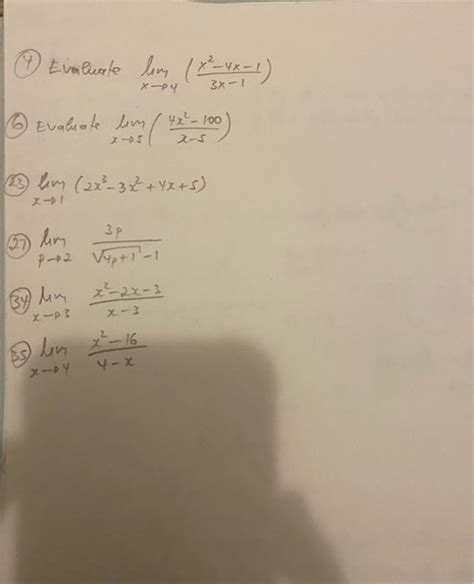 ④ Evaluate lim x→4 (x²-4x-1 / 3x-1)
⑥ Evaluate lim x→5 (4x²-100 / x-5)
㉓ lim x→1 (2x³-3x²+4x+5)
㉗ lim p→2 3p / √4p+1 -1
㉞ lim x→3 x²-2x-3 / x-3
㉟ lim x→4 x²-16 / 4-x